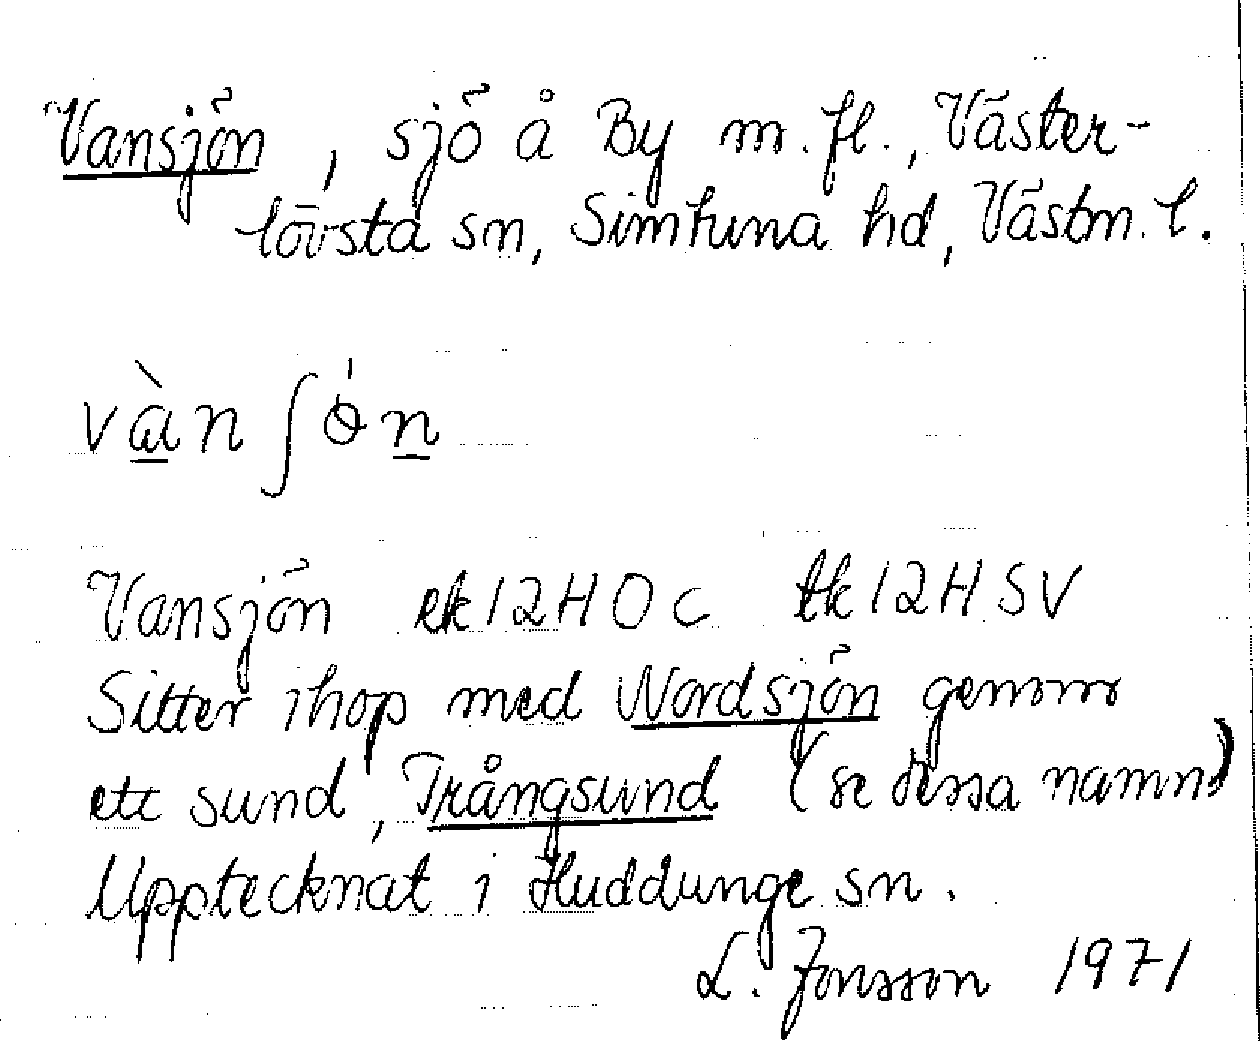 Vansjön, sjö å By m. fl., Väster-
lövsta sn, Simtuna hd, Västm. l.
Vansjön ek 12H0c tk 12HSV
Sitter ihop med Nordsjön genom
ett sund, Trångsund (se dessa namn)
Upptecknat i Huddunge sn.
L. Jonsson 1971